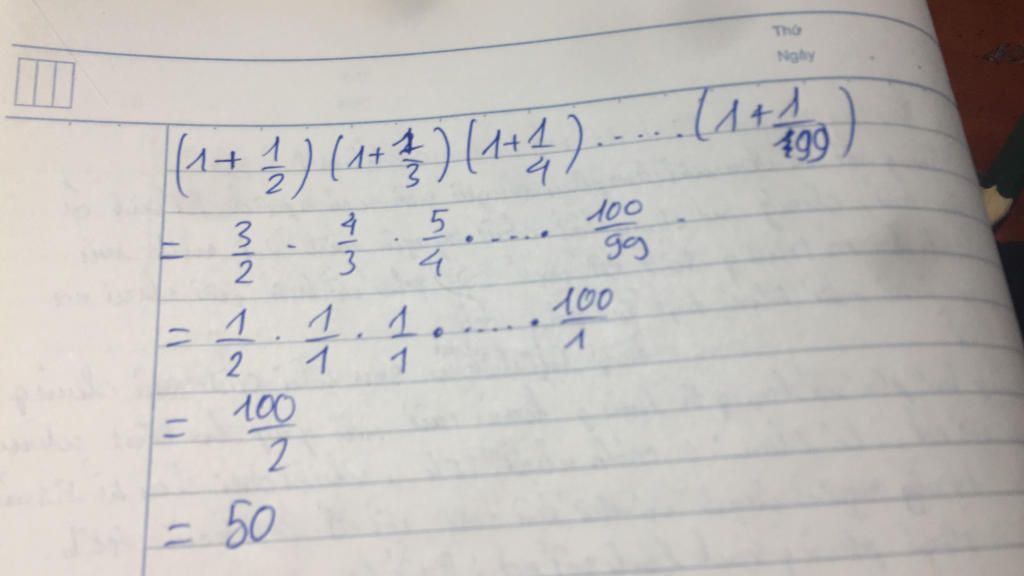 Thứ
Ngày
(1 + 1/2) (1 + 1/3) (1 + 1/4) ..... (1 + 1/99)
= 3/2 . 4/3 . 5/4 . .... . 100/99
= 1/2 . 1/1 . 1/1 . ..... . 100/1
= 100/2
= 50